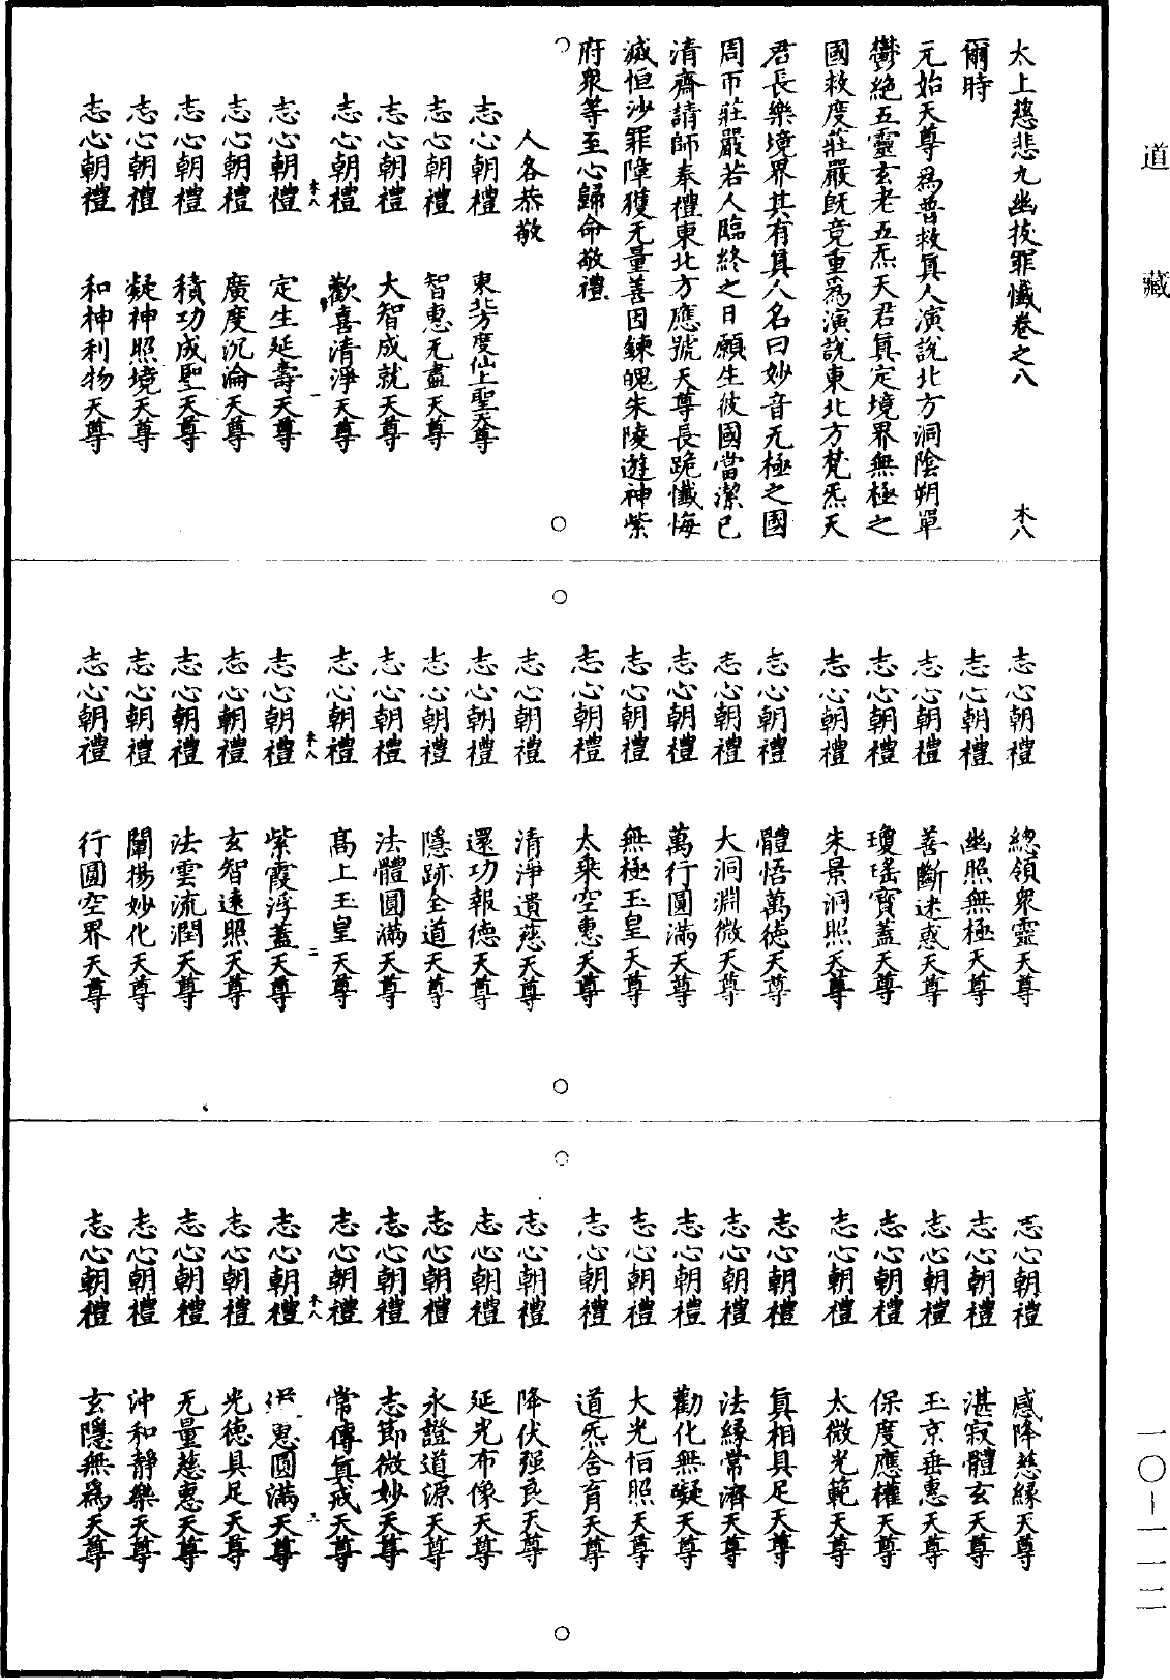 道藏
太上慈悲九幽拔罪懺卷之八　　木八
爾時
元始天尊為普救真人演說北方洞陰朔單
鬱絕五靈玄老五炁天君真定境界無極之
國救度莊嚴既竟重為演說東北方梵炁天
君長樂境界其有真人名曰妙音无極之國
周帀莊嚴若人臨終之日願生彼國當潔已
清齋請師奉禮東北方應號天尊長跪懺悔
滅恒沙罪障獲无量善因鍊魄朱陵遊神紫
府衆等至心歸命敬禮
人各恭敬
志心朝禮　東北方度仙上聖天尊
志心朝禮　智惠无盡天尊
志心朝禮　大智成就天尊
志心朝禮　歡喜清淨天尊
木八　一
志心朝禮　定生延壽天尊
志心朝禮　廣度沉淪天尊
志心朝禮　積功成聖天尊
志心朝禮　凝神照境天尊
志心朝禮　和神利物天尊
志心朝禮　總領衆靈天尊
志心朝禮　幽照無極天尊
志心朝禮　善斷迷惑天尊
志心朝禮　瓊瑤寶蓋天尊
志心朝禮　朱景洞照天尊
志心朝禮　體悟萬德天尊
志心朝禮　大洞淵微天尊
志心朝禮　萬行圓滿天尊
志心朝禮　無極玉皇天尊
志心朝禮　太乘空惠天尊
志心朝禮　清淨遺慈天尊
志心朝禮　還功報德天尊
志心朝禮　隱跡全道天尊
志心朝禮　法體圓滿天尊
志心朝禮　高上玉皇天尊
木八　二
志心朝禮　紫霞浮蓋天尊
志心朝禮　玄智遠照天尊
志心朝禮　法雲流潤天尊
志心朝禮　闡揚妙化天尊
志心朝禮　行圓空界天尊
志心朝禮　感降慈緣天尊
志心朝禮　湛寂體玄天尊
志心朝禮　玉京垂惠天尊
志心朝禮　保度應權天尊
志心朝禮　太微光範天尊
志心朝禮　真相具足天尊
志心朝禮　法緣常濟天尊
志心朝禮　勸化無礙天尊
志心朝禮　大光怕照天尊
志心朝禮　道炁含育天尊
志心朝禮　降伏强良天尊
志心朝禮　延光布像天尊
志心朝禮　永證道源天尊
志心朝禮　志節微妙天尊
志心朝禮　常傳真戒天尊
木八　三
志心朝禮　惠圓滿天尊
志心朝禮　光德具足天尊
志心朝禮　无量慈惠天尊
志心朝禮　沖和靜樂天尊
志心朝禮　玄隱無為天尊
一〇—一一二